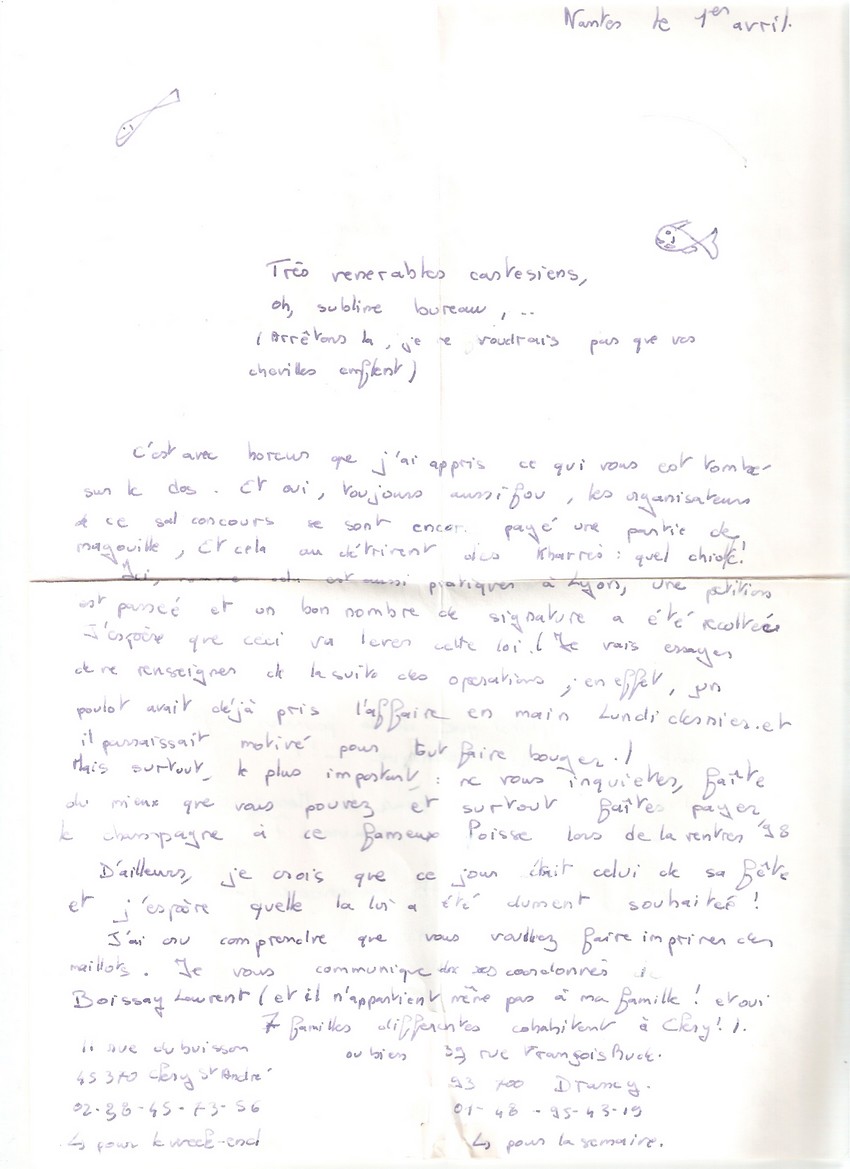 Nantes le 1er avril.
Très venerables castesiens,
oh, sublime bureau, ...
(Arrêtons là, je ne voudrais pas que vos
chevilles enflent)
C'est avec horeur que j'ai appris ce qui vous est tombé
sur le dos. Et oui, toujours aussi fou, les organisateurs
de ce sal concours se sont encor payé une partie de
magouille, Et cela au détriment des Kharrés : quel chiotte!
Ici, comme cela est aussi pratiquer à Lyon, une pétition
est passeé et un bon nombre de signature a été recolteés
J'espère que ceci va lever cette loi. (Je vais essayer
de me renseigner de la suite des operations, ; en effet, un
poulot avait déjà pris l'affaire en main Lundi dernier. et
il paraissait motivé pour tout faire bouger.)
Mais surtout, le plus important : ne vous inquietes, faîte
du mieux que vous pouvez et surtout faîtes payer
le champagne à ce fameux Poisse lors de la rentres '98
D'ailleurs, je crois que ce jour était celui de sa fête
et j'espère quelle la lui a été dument souhaiteé !
J'ai cru comprendre que vous vouliez faire imprimer des
maillots. Je vous communique ses coordonnés
Boissay Laurent (et il n'appartient même pas à ma famille ! et oui
7 familles differentes cohabitent à Clery! ).
11 rue du buisson ou bien 39 rue François Buck.
45370 Clery St André 93 700 Drancy.
02-38-45-73-56 01-48-95-43-19
↳ pour le week-end ↳ pour la semaine.